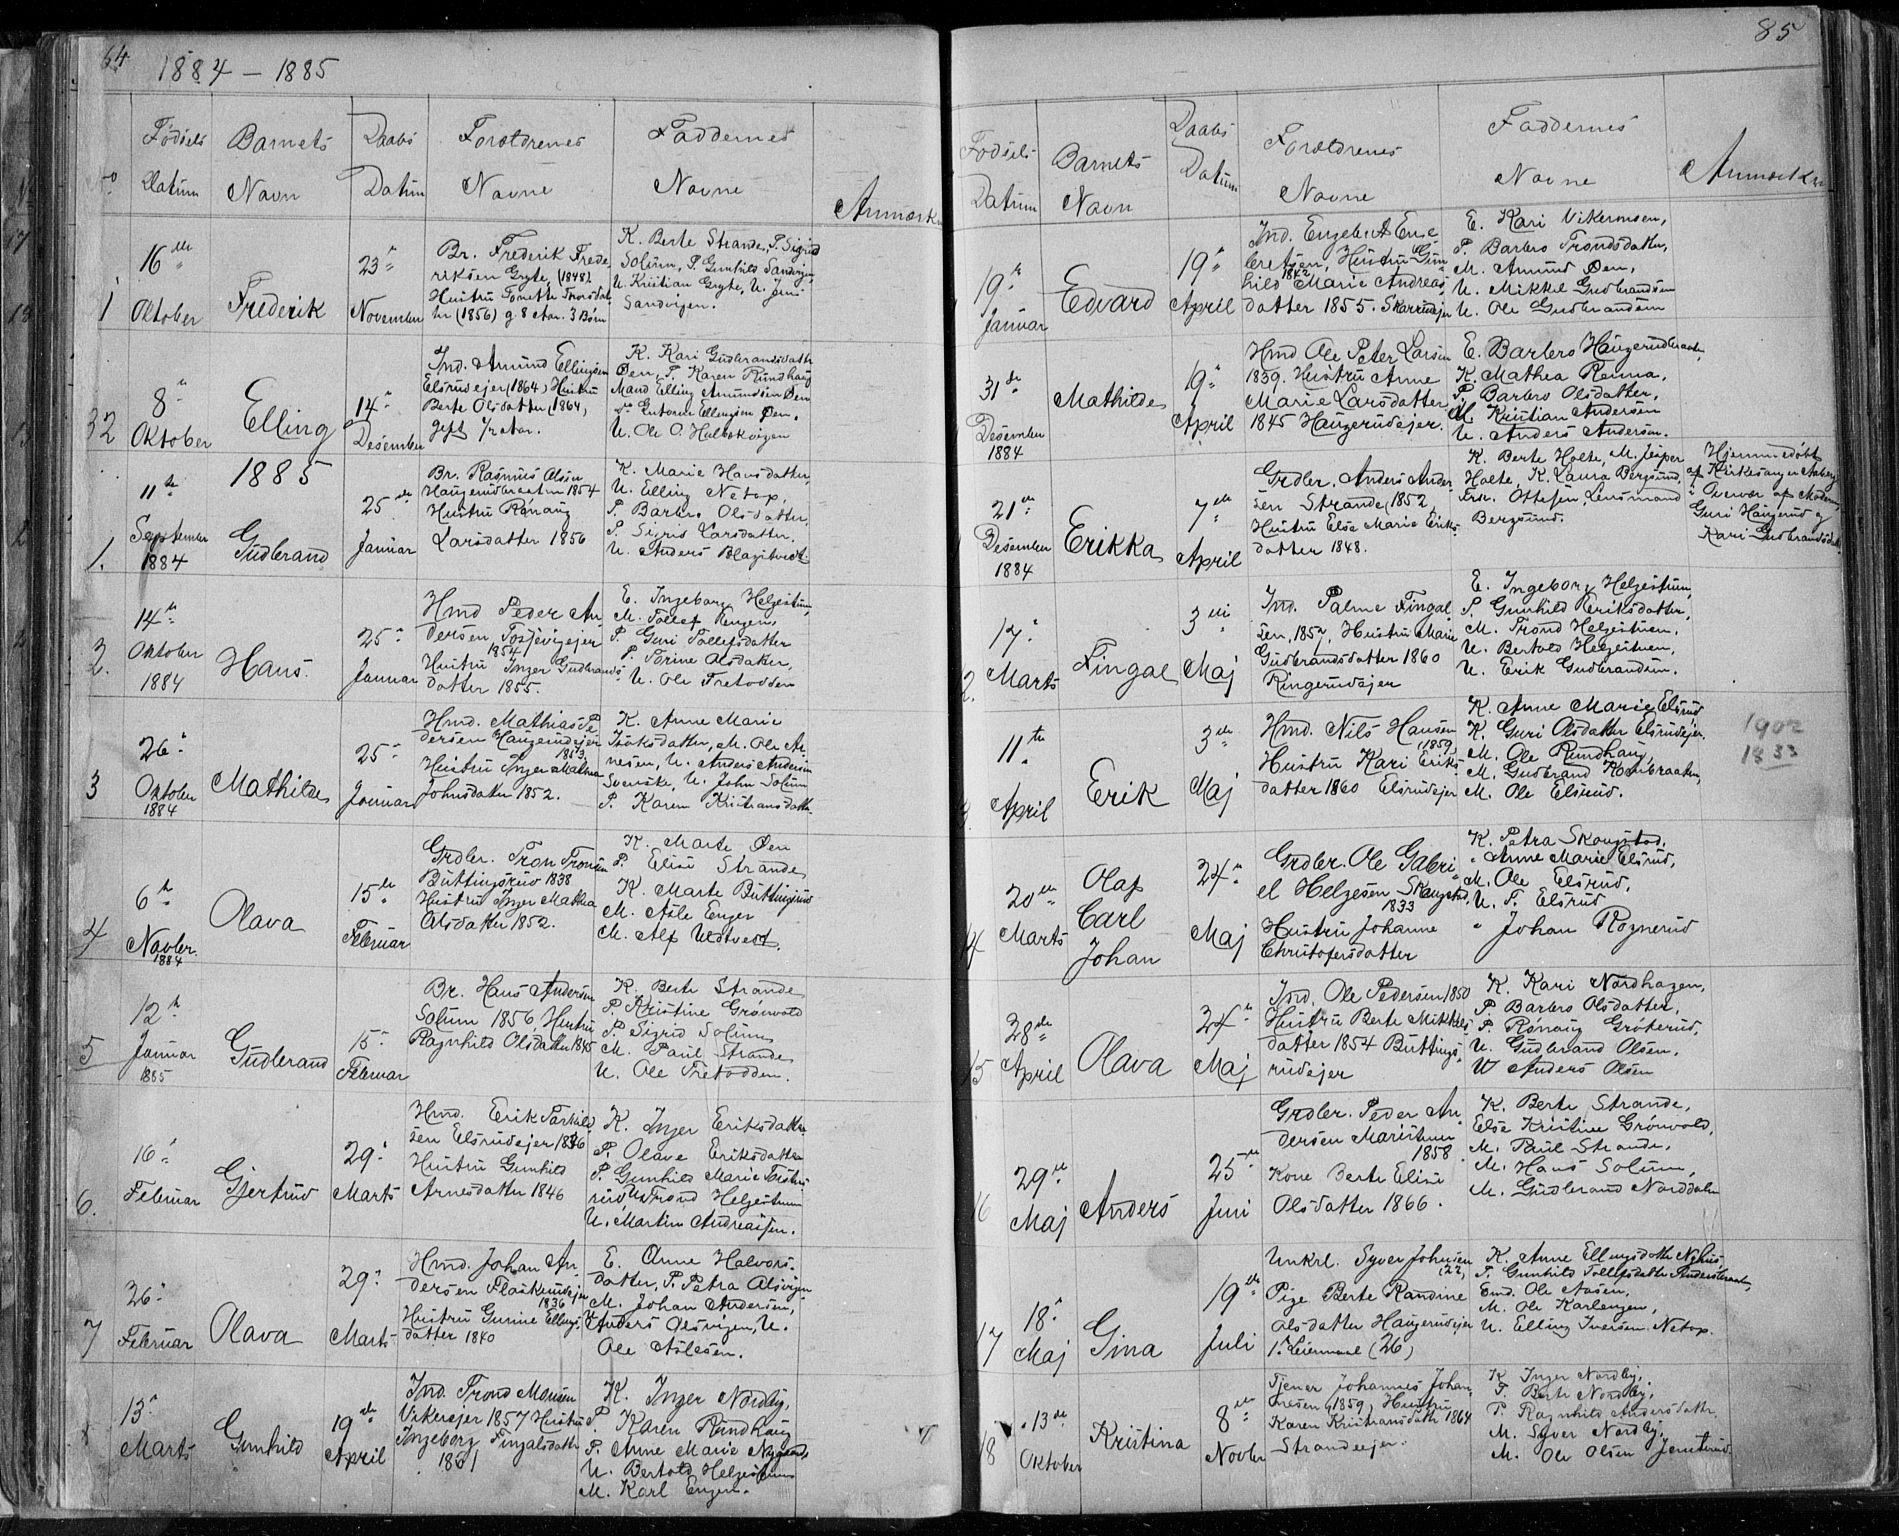 64
1884 – 1885
No
Fødsels
Datum
Barnets
Navn
Daabs
Datum
Forældrenes
Navne
Faddernes
Navne
Anmærkn
1
16de
Oktober
Frederik
23
November
Br. Frederik Frede-
riksen Gryte, (1848)
Hustru Tonette Thorsdat-
ter (1856) g 8 Aar. 3 Børn
K. Berte Strande, P. Sigrid
Solum, P. Gunhild Sandvigen,
U. Kristian Gryte, U. Jens
Sandvigen.
32
8
Oktober
Elling
14
Desember
Ind. Amund Ellingsen
Elsrudejer (1864) Hustru
Berte Olsdatter (1864)
gift 1/2 Aar.
K. Kari Gudbrandsdatter
Øen, P. Karen Rundhaug
Mand Elling Amundsen Øen
Do Gutorm Ellingsen Øen.
U. Ole O. Holbekvigen
1885
1.
11te
September
1884
Gudbrand
25de
Januar
Br. Rasmus Olsen
Haugerudbraaten 1854
Hustru Rønaug
Larsdatter 1856
K. Marie Hansdatter,
U. Elling Netop,
P. Barbro Olsdatter,
P. Sigrid Larsdatter.
U. Anders Blagstvedt.
2.
14
Oktober
1884
Hans.
25
Januar
Hmd Peder An-
dersen, Tosjevigejer
1854
Hustru Inger Gudbrands
datter 1855.
E. Ingeborg Helgestuen,
M. Tollef Rengen,
P. Guri Tollefsdatter
P. Torine Olsdatter,
U. Ole Tretodden
3
26
Oktober
1884
Mathilde
25
Januar
Hmd. Mathias Pe-
dersen Haugerudejer
1853,
Hustru Inger Mathea
Johnsdatter 1852.
K. Anne Marie
Isaksdatter, M. Ole Ar-
nesen, U. Anders Andersen
Svenske, U. John Solum
P. Karen Kristiansdatter
4
6te
Novbr.
1884
Olava
15de
Februar
Grdbr. Tron Tronsen
Buttingsrud 1838
Hustru Inger Mathea
Olsdatter 1852.
K. Marte Øen
P. Elise Strande
K. Marte Buttingsrud
M. Asle Enger
M. Alf Uldtvedt.
5
12te
Januar
1885
Gudbrand
15
Februar
Br. Hans Andersen
Solum 1856, Hustru
Ragnhild Olsdatter 1845
K. Berte Strande
P. Kristine Grønvold
P. Sigrid Solum
M. Paul Strande
U. Ole Tretodden.
6.
16
Februar
Gjertrud
29
Marts
Hmd. Erik Tarkild-
sen Elsrudejer 1836
Hustru Gunhild
Arnesdatter 1846
K. Inger Eriksdatter
P. Olave Eriksdatter
P. Gunhild Marie
rud, U. Trond Helgestuen
U. Martin Andreassen.
7
26
Februar
Olava
29
Marts
Hmd. Johan An-
dersen Flaskerudejer
1836
Hustru Gurine Ellings-
datter 1840
E. Anne Halvors-
datter, P. Petra Alsvigen
M. Johan Andersen,
U. Anders Olsvigen, U.
Ole Aslesen.
8
13
Marts
Gunhild
19de
April
Ind. Trond Monsen
Vikersejer 1857 Hustru
Ingeborg Fingalsdatter
1861
K. Inger Nordby,
P. Karen Rundhaug
P. Anne Marie Nygaard
U. Bertold Helgestuen
M. Karl Engen.
85
Fødsels-
Datum
Barnets
Navn
Daabs
Datum
Forældrenes
Navne
Faddernes
Navne
Anmærkn
19
Januar
Edvard
19
April
Ind. Engebret Enge-
bretsen, Hustru Gun-
1842
hild Marie Andreas
datter 1855. Skarrudejer
E. Kari Vikermoen,
P. Barbro Trondsdatter,
M. Amund Øen,
U. Mikkel Gudbrandsen
U. Ole Gudbrandsen
31de
Desember
1884
Mathilde
19
April
Hmd Ole Peter Larsen
1839. Hustru Anne
Marie Larsdatter
1845 Haugerudejer.
E. Barbro Haugerudbraaten,
K. Mathea Renna,
P. Barbro Olsdatter,
M. Kristian Andersen
U. Anders Andersen.
21de
Desember
1884
Erikka
7de
April
Grdbr. Anders Ander-
sen Strande (1852,
Hustru Else Marie Eriks-
datter 1848.
K. Berte Holte, M. Jesper
Holte, K. Laura Bergsund,
Frk. Ottesen, Lensmand
Bergsund.
Hjemmedøbt
af Kirkesanger Asberg
i Overvær af Moderen,
Guri Haugerud og
Kari Gudbrandsdatter.
2.
17
Marts
Fingal
3die
Maj
Ind. Palme Fingal-
sen, 1857, Hustru Marie
Gudbrandsdatter 1860
Ringerudejer
E. Ingeborg Helgestuen,
P. Gunhild Eriksdatter,
M. Trond Helgestuen,
U. Bertold Helgestuen,
U. Erik Gudbrandsen.
3.
11te
April
Erik
3die
Maj
Hmd. Nils Hansen
(1859)
Hustru Kari Eriks-
datter 1860 Elsrudejer
K. Anne Marie Elsrud,
K. Guri Olsdatter Elsrudejer.
M. Ole Rundhaug,
M. Gudbrand Kornbraaten,
M. Ole Elsrud.
1902
1833
4
20de
Marts
Olaf
Carl
Johan
24
Maj
Grdbr. Ole Gabri-
el Helgesen Skaugstad,
1833
Hustru Johanne
Christofersdatter
K. Petra Skaugstad,
" Anne Marie Elsrud,
M. Ole Elsrud,
U. T. Elsrud
" Johan Rognerud
15
28de
April
Olava
24
Maj
Ind. Ole Pedersen 1850
Hustru Berte Mikkels-
datter 1854 Buttings-
rudejer
K. Kari Nordhagen,
P. Barbro Olsdatter,
P. Rønaug Grøterud,
U. Gudbrand Olsen,
U Anders Olsen
16
29de
Maj
Anders
25de
Juni
Grdbr. Peder An-
dersen Maristuen
1858
Kone Berte Elise
Olsdatter 1866.
K. Berte Strande,
Else Kristine Grønvold,
M. Paul Strande,
M. Hans Solum,
M. Gudbrand Norddalen
17
18
Maj
Gina
19de
Juli
Unkrl. Syver Johnsen
(22)
Pige Berte Randine
Olsdatter Haugerudejer
1. Leiermaal (26)
K. Anne Ellingsdatter Nyhus,
P. Gunhild Tollefsdatter Andersbraaten,
Emd. Ole Aasen,
M. Ole Karlengen,
U. Elling Iversen Netop.
18
13de
Oktober
Kristina
8de
Novbr
Tjener Johannes Johan-
nesen (1859) Hustru
Karen Kristiansdatter 1864
Strandeejer.
K Inger Nordby,
P. Berte Nordby,
P. Ragnhild Andersdatter
M. Syver Nordby,
M. Ole Olsen Jenserud